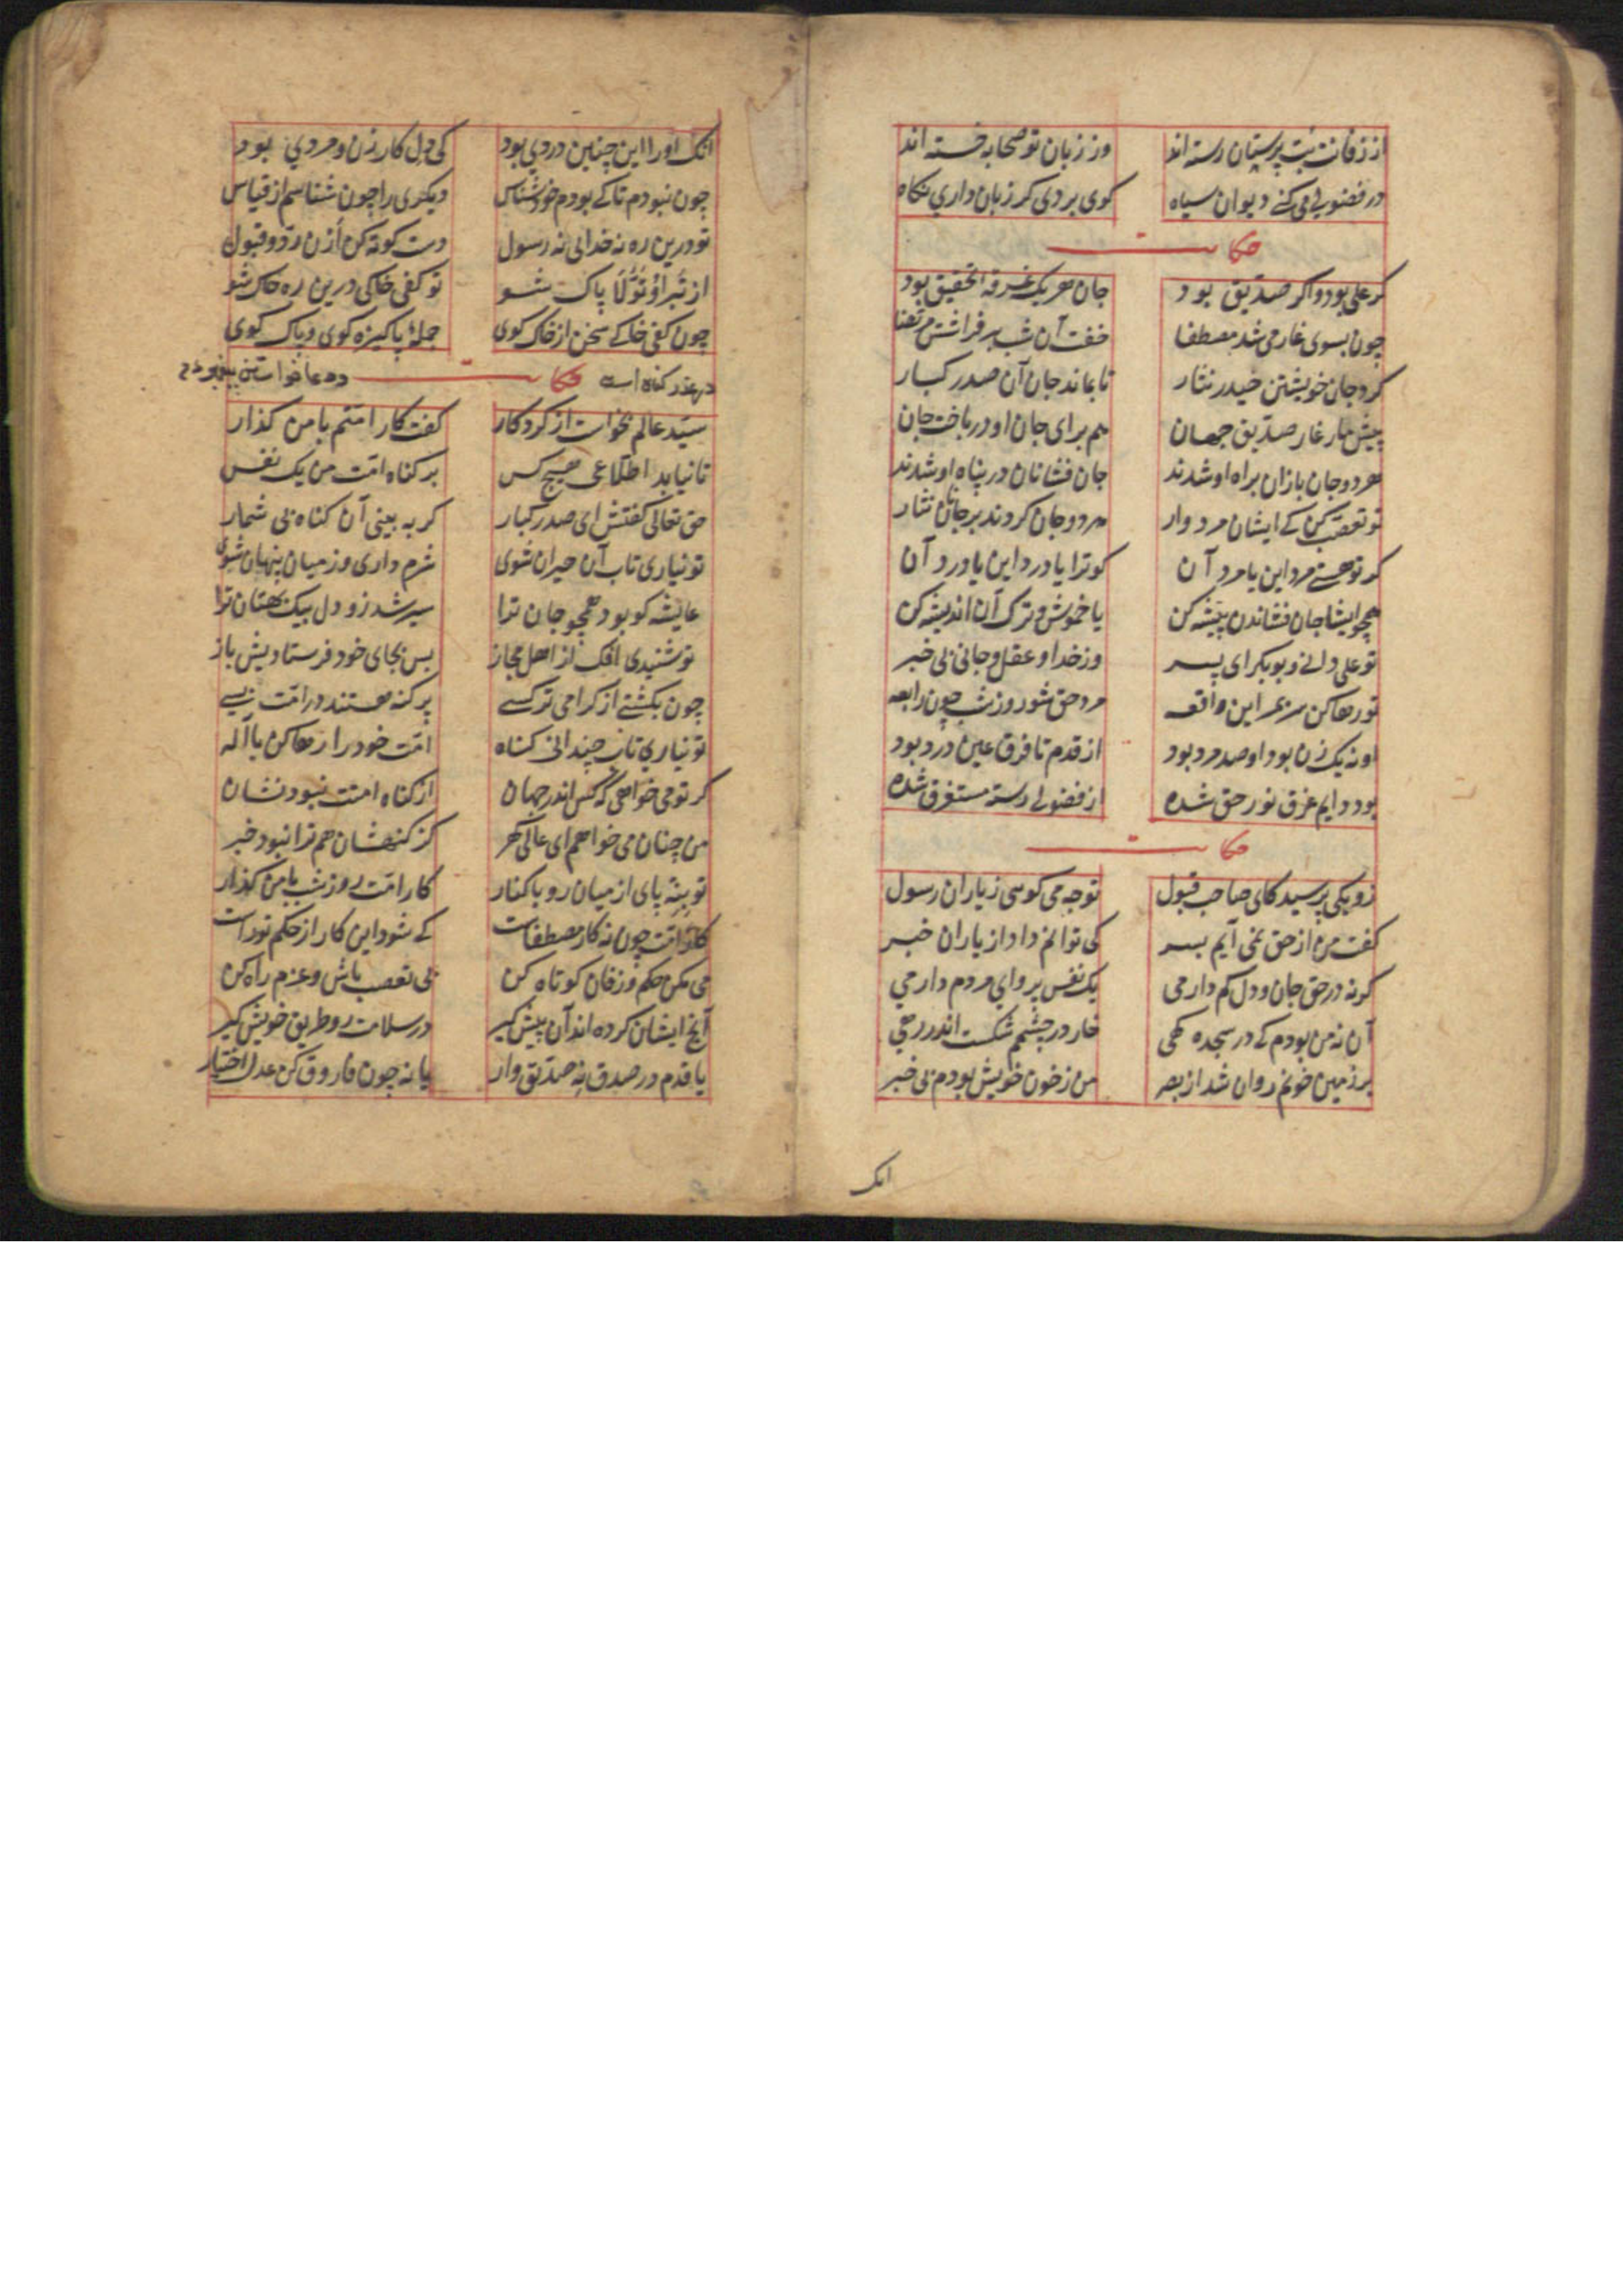 از زفانت بت پرستان رسته اند وز زبان تو صحابه خسته اند
در فضولی می کنی دیوان سیاه کوی بردی کر زبان داری نکاه
حکایت
کر علی بود و اکر صدیق بود جان هر یک غرقه تحقیق بود
چون بسوی غار می شد مصطفا خفت آن شب بر فراشش مرتضا
کرد جان خویشتن حیدر نثار تا بماند جان آن صدر کبار
پیش یار غار صدیق جهان هم برای جان او در باخت جان
هر دو جان بازان براه او شدند جان فشانان در پناه او شدند
تو تعصب کن کی ایشان مردوار هر دو جان کردند بر جانان نثار
کر تو هستی مرد این یا مرد آن کو ترا یا درد این یا درد آن
همچو ایشا جان فشاندن پیشه کن یا خموش و ترک آن اندیشه کن
تو علی دانی و بوبکر ای پسر وز خدا و عقل و جانی بی خبر
تو رها کن سر بمهر این واقعه مرد حق شو روز شب چون رابعه
او نه یک زن بود او صد مرد بود از قدم تا فرق عین درد بود
بود دایم غرق نور حق شده از فضولی رسته مستغرق شده
حکایت
زو یکی پرسید کای صاحب قبول تو چه می کوئی ز یاران رسول
کفت من از حق نمی آیم بسر کی توانم داد از یاران خبر
کر نه در حق جان و دل کم دارمی یک نفس پروای مردم دارمی
آن نه من بودم کی در سجده کهی خار در چشمم شکست اندر رهی
بر زمین خونم روان شد از بصر من ز خون خویش بودم بی خبر
انک
انک او را این چنین دردی بود کی دل کار زن و مردی بود
چون نبودم تا کی بودم خود شناس دیکری را چون شناسم از قیاس
تو درین ره نه خدائی نه رسول دست کوته کن ازن رد و قبول
از تبرا و تولا پاک شو تو کفی خاکی درین ره خاک شو
چون کفی خاکی سخن از خاک کوی جمله پاکیزه کوی و پاک کوی
در عذر کناه امت حکایت و دعا خواستن پیغمبر
سید عالم بخواست از کردکار کفت کار امتم با من کذار
تا نیابد اطلاعی هیچ کس بر کناه امت من یک نفس
حق تعالی کفتش ای صدر کبار کر به بینی آن کناه بی شمار
تو نیاری تاب آن حیران شوی شرم داری وز میان پنهان شوی
عایشه کو بود همچو جان ترا سیر شد زو دل بیک بهتان ترا
تو شنیدی افک از اهل مجاز بس بجای خود فرستادیش باز
چون بکشتی از کرامی تر کسی پر کنه هستند در امت بسی
تو نیاری تاب چندانی کناه امت خود را رها کن با اله
کر تو می خواهی که کس اندر جهان از کناه امتت نبود نشان
من چنان می خواهم ای عالی کهر کز کنهشان هم ترا نبود خبر
تو بنه پای از میان رو با کنار کار امت روز شب با من کذار
کار امت چون نه کار مصطفاست کی شود این کار از حکم تو راست
می مکن حکم و زفان کوتاه کن بی تعصب باش و عزم راه کن
آنچ ایشان کرده اند آن پیش کیر در سلامت رو طریق خویش کیر
یا قدم در صدق نه صدیق وار یا نه چون فاروق کن عدل اختیار